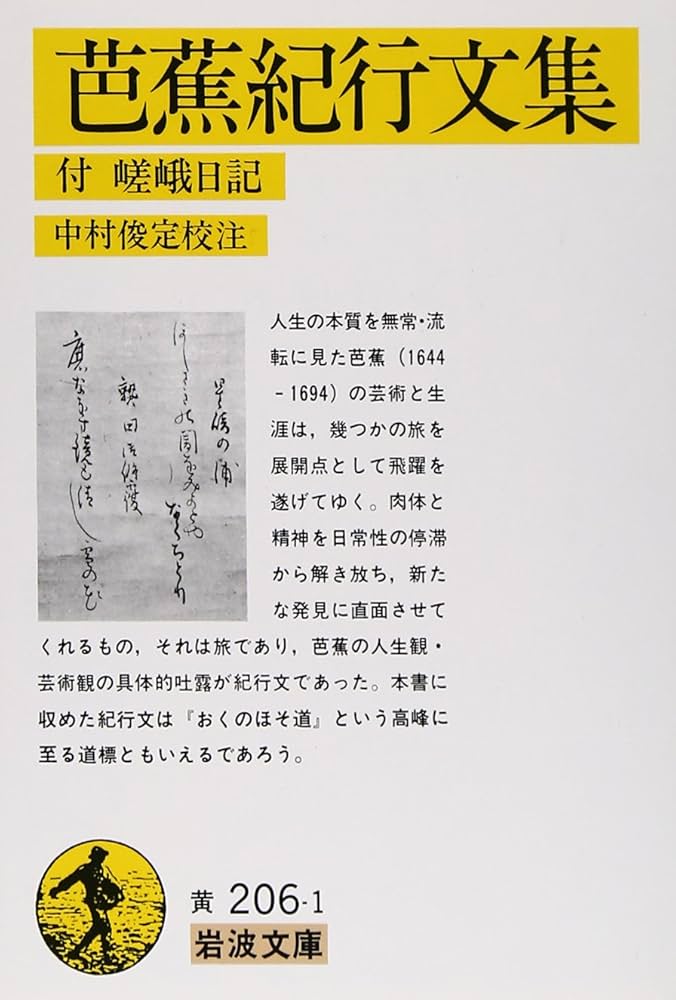 芭蕉紀行文集
付 嵯峨日記
中村俊定校注
星崎の浦
ほしさきの闇をみよとや
なくちとり
熱田御修覆
磨なをす鏡も清し雪の
人生の本質を無常・流
転に見た芭蕉（1644
‐1694）の芸術と生
涯は，幾つかの旅を
展開点として飛躍を
遂げてゆく。肉体と
精神を日常性の停滞
から解き放ち，新た
な発見に直面させて
くれるもの，それは旅であり，芭蕉の人生観・
芸術観の具体的吐露が紀行文であった。本書に
収めた紀行文は『おくのほそ道』という高峰に
至る道標ともいえるであろう。
黄 206-1
岩波文庫